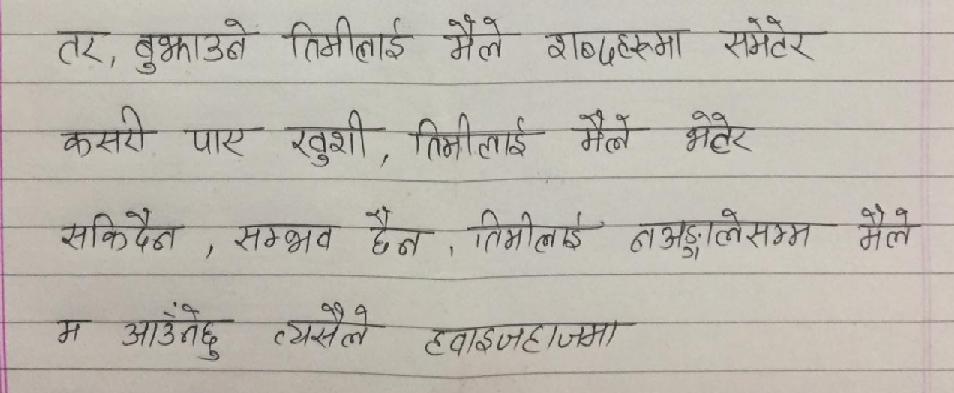 तर, बुझाउने तिमीलाई मैले शब्दहरूमा समेटेर
कसरी पाए खुशी, तिमीलाई मैले भेटेर
सकिदैन, सम्भव छैन, तिमीलाई नअङ्गालेसम्म मैले
म आउँनेछु त्यसैले हवाइजहाजमा